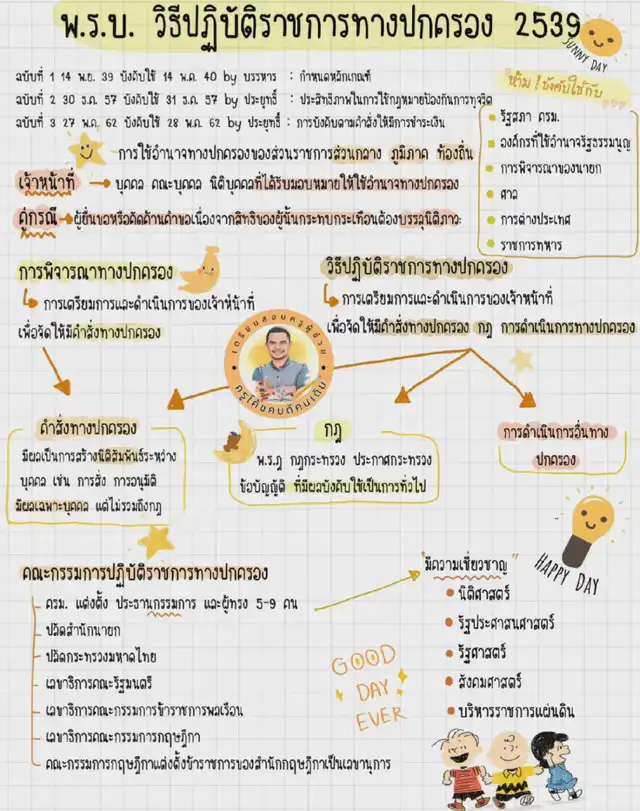 พ.ร.บ. วิธีปฏิบัติราชการทางปกครอง 2539
SUNNY DAY
ฉบับที่ 1 14 พ.ย. 39 บังคับใช้ 14 พ.ค. 40 by บรรหาร : กำหนดหลักเกณฑ์
ฉบับที่ 2 30 ธ.ค 57 บังคับใช้ 31 ธ.ค 57 by ประยุทธ์ : ประสิทธิภาพในการใช้กฎหมายป้องกันการทุจริต
ฉบับที่ 3 27 พ.ค 62 บังคับใช้ 28 พ.ค 62 by ประยุทธิ์ : การบังคับตามคำสั่งให้มีการชำระเงิน
ห้าม ! บังคับใช้กับ
รัฐสภา ครม.
องค์กรที่ใช้อำนาจรัฐธรรมนูญ
การพิจารณาของนายก
ศาล
การต่างประเทศ
ราชการทหาร
การใช้อำนาจทางปกครองของส่วนราชการส่วนกลาง ภูมิภาค ท้องถิ่น
เจ้าหน้าที่ บุคคล คณะบุคคล นิติบุคคลที่ได้รับมอบหมายให้ใช้อำนาจทางปกครอง
คู่กรณี ผู้ยื่นขอหรือคัดค้านคำขอเนื่องจากสิทธิของผู้นั้นกระทบกระเทือนต้องบรรลุนิติภาวะ
การพิจารณาทางปกครอง
การเตรียมการและดำเนินการของเจ้าหน้าที่
เพื่อจัดให้มีคำสั่งทางปกครอง
วิธีปฏิบัติราชการทางปกครอง
การเตรียมการและดำเนินการของเจ้าหน้าที่
เพื่อจัดให้มีคำสั่งทางปกครอง กฎ การดำเนินการทางปกครอง
เตรียมสอบครูผู้ช่วย
ครูโค้ชคนดีคนเดิม
คำสั่งทางปกครอง
มีผลเป็นการสร้างนิติสัมพันธ์ระหว่าง
บุคคล เช่น การสั่ง การอนุมัติ
มีผลเฉพาะบุคคล แต่ไม่รวมถึงกฎ
กฎ
พ.ร.ฎ กฎกระทรวง ประกาศกระทรวง
ข้อบัญญัติ ที่มีผลบังคับใช้เป็นการทั่วไป
การดำเนินการอื่นทาง
ปกครอง
HAPPY DAY
คณะกรรมการปฏิบัติราชการทางปกครอง
ครม. แต่งตั้ง ประธานกรรมการ และผู้ทรง 5-9 คน
ปลัดสำนักนายก
ปลัดกระทรวงมหาดไทย
เลขาธิการคณะรัฐมนตรี
เลขาธิการคณะกรรมการข้าราชการพลเรือน
เลขาธิการคณะกรรมการกฤษฎีกา
คณะกรรมการกฤษฎีกาแต่งตั้งข้าราชการของสำนักกฤษฎีกาเป็นเลขานุการ
"มีความเชี่ยวชาญ"
นิติศาสตร์
รัฐประศาสนศาสตร์
รัฐศาสตร์
สังคมศาสตร์
บริหารราชการแผ่นดิน
GOOD
DAY
EVER